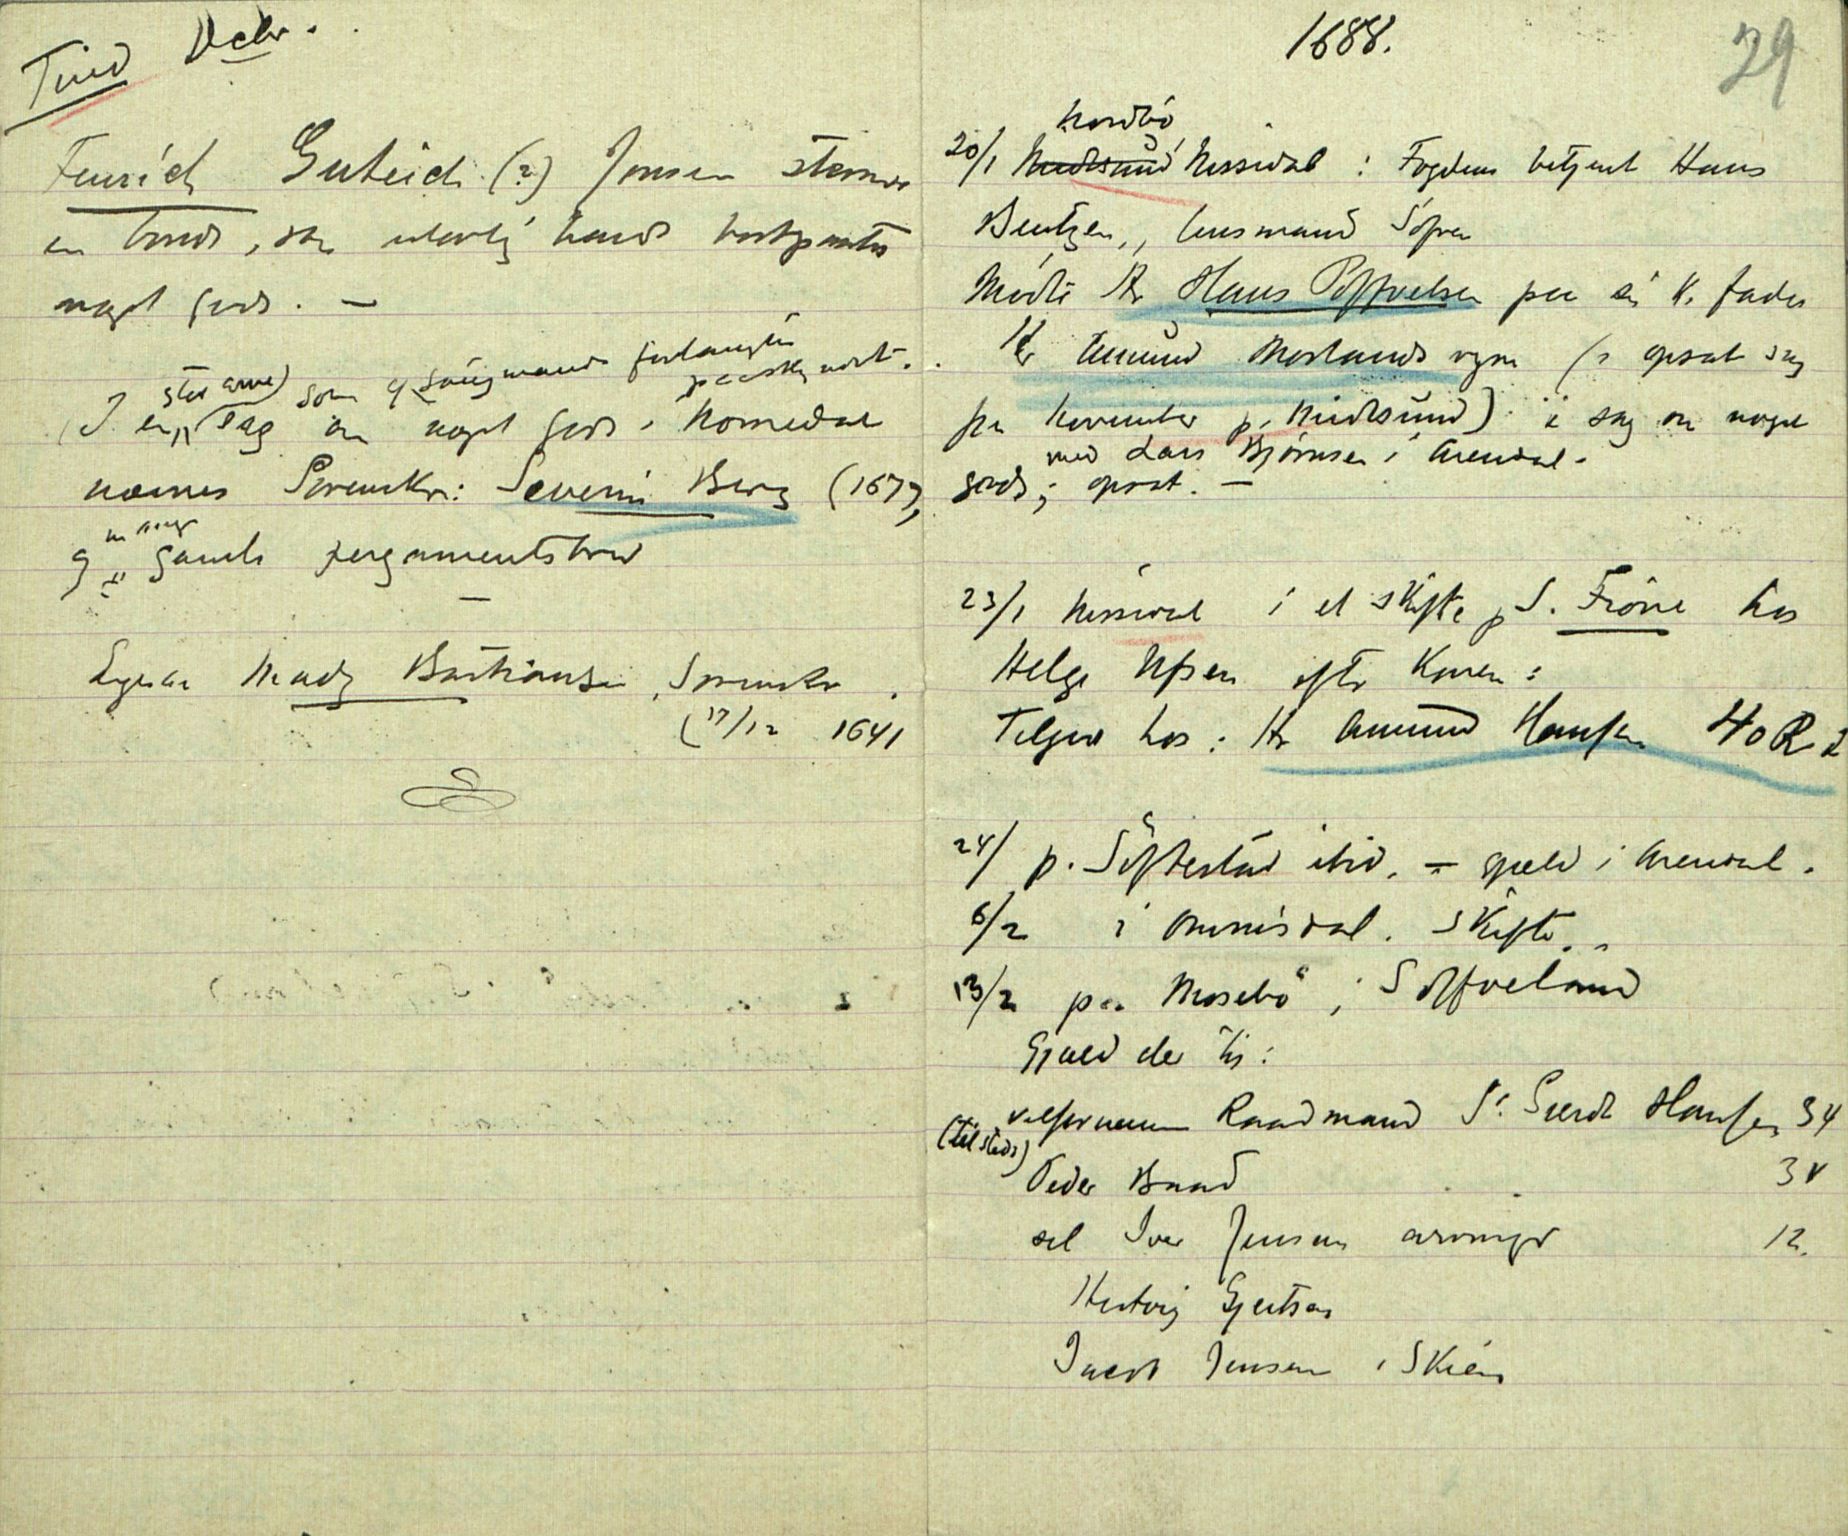 Tind Decbr.
Fenrich Guteich (?) Jonsen stevner
en bonde, som ulovlig havde bortpantet
noget gods. —
stor arve) som af Sougmand forlangtes
paaskyndet.
(I en sag om noget gods i Homedal
nævnes Sorenskr: Severin Berg (1677,
m ange
og gamle pergamentsbrev
—
Ligesaa Mads Bastiansen, Sorenskr.
(17/12 1641
1688.
29
Nordbö
20/1 Midtsund Nissedal : Fogdens betjent Hans
Bentzen, lensmand Sofren
Mödte Hr Hans Poffvelsen paa sin K. fader
Hr Amund Morlands vegne (i opsat sag
fra November p. Midtsund) i sag om noget
med Lars Björnsen i Arendal.
gods; opsat. —
23/1 Nissedal i et skifte p S. Fröne hos
Helge Ufsen efter Konen:
Tilgod hos : Hr Amund Hansen 40 R
24/ p. Söftestad ibid. — gjæld i Arendal.
6/2 i Omnisdal. Skifte
13/2 paa Mosebö i Selfveland
Gjæld der til:
velfornemme Raadmand Sr. Gierdt Hansen 34
(tilstede)
Peder Baad 3
sal Iver Jensens arvinger 12.
Hertvig Gjertsen
Jacob Jensen i Skien